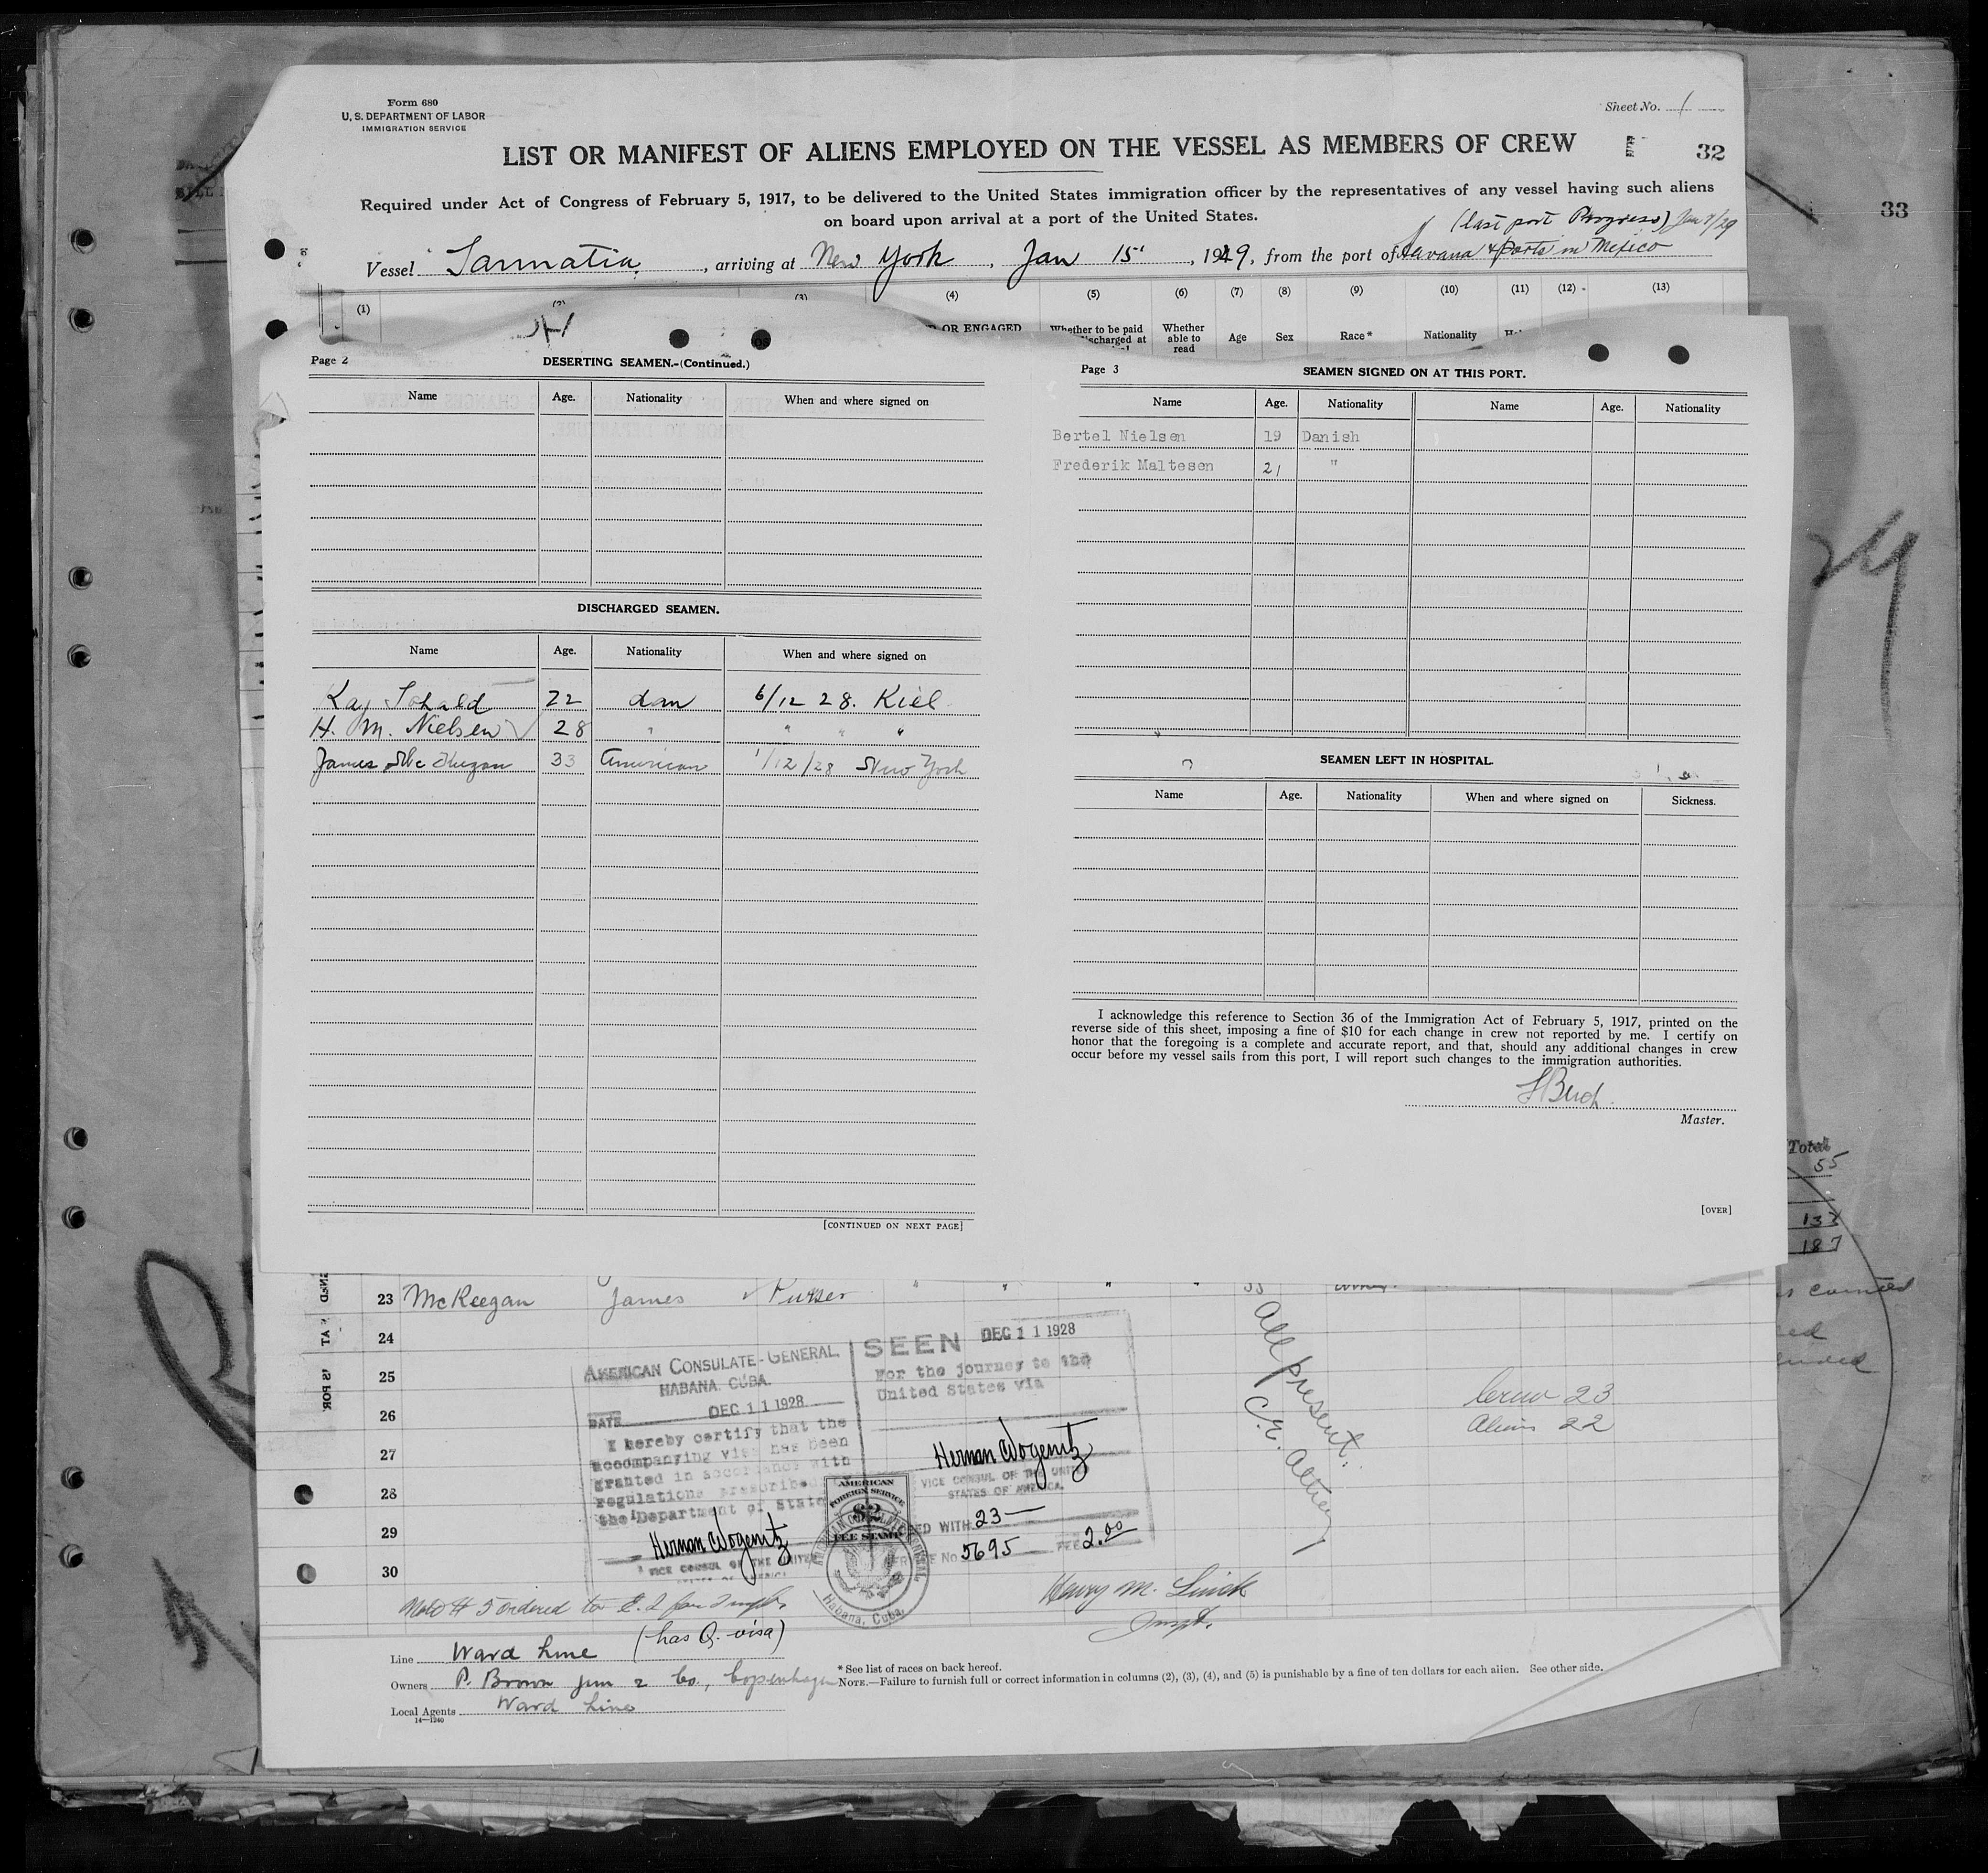 Form 680
U. S. DEPARTMENT OF LABOR
IMMIGRATION SERVICE
Sheet No. 1
LIST OR MANIFEST OF ALIENS EMPLOYED ON THE VESSEL AS MEMBERS OF CREW
32
33
Required under Act of Congress of February 5, 1917, to be delivered to the United States immigration officer by the representatives of any vessel having such aliens
on board upon arrival at a port of the United States.
(last port Progreso) Jan 7/29
Vessel Sarmatia, arriving at New York, Jan 15, 1929, from the port of Havana & Ports in Mexico
(1) (2) (3) (4) (5) (6) (7) (8) (9) (10) (11) (12) (13)
OR ENGAGED Whether to be paid Whether able to read Age Sex Race* Nationality
Page 2
DESERTING SEAMEN.-(Continued.)
Name Age. Nationality When and where signed on
DISCHARGED SEAMEN.
Name Age. Nationality When and where signed on
Kay Schald 22 dan 6/12 28. Kiel
H. M. Nielsen 28 " " " "
James Mc 33 American 1/12/28 New York
[CONTINUED ON NEXT PAGE]
Page 3
SEAMEN SIGNED ON AT THIS PORT.
Name Age. Nationality Name Age. Nationality
Bertel Nielsen 19 Danish
Frederik Maltesen 21 "
SEAMEN LEFT IN HOSPITAL.
Name Age. Nationality When and where signed on Sickness.
I acknowledge this reference to Section 36 of the Immigration Act of February 5, 1917, printed on the
reverse side of this sheet, imposing a fine of $10 for each change in crew not reported by me. I certify on
honor that the foregoing is a complete and accurate report, and that, should any additional changes in crew
occur before my vessel sails from this port, I will report such changes to the immigration authorities.
Master.
[OVER]
Total
55
133
187
23 McKeegan James Purser " " " " 33
24
25
26
27
28
29
30
AMERICAN CONSULATE-GENERAL
HABANA. CUBA.
DATE DEC 11 1928
I hereby certify that the
accompanying visa has been
granted in accordance with
regulations prescribed
the Department of State
Hernan Wogenitz
VICE CONSUL OF THE UNITED
SEEN DEC 11 1928
For the journey to the
United States via
Hernan Wogenitz
VICE CONSUL OF THE UNITED
STATES OF AMERICA.
ED WITH 23—
No 5695 FEE 2.00
AMERICAN
FOREIGN SERVICE
$2
FEE STAMP
Habana, Cuba.
All present.
Crew 23
Aliens 22
Henry M.
Inspt.
Note # 5 ordered to E. I for
(has Q. visa)
Line Ward Line
Owners P. Brown jun & Co., Copenhagen
Local Agents Ward Line
14—1240
* See list of races on back hereof.
NOTE.—Failure to furnish full or correct information in columns (2), (3), (4), and (5) is punishable by a fine of ten dollars for each alien. See other side.